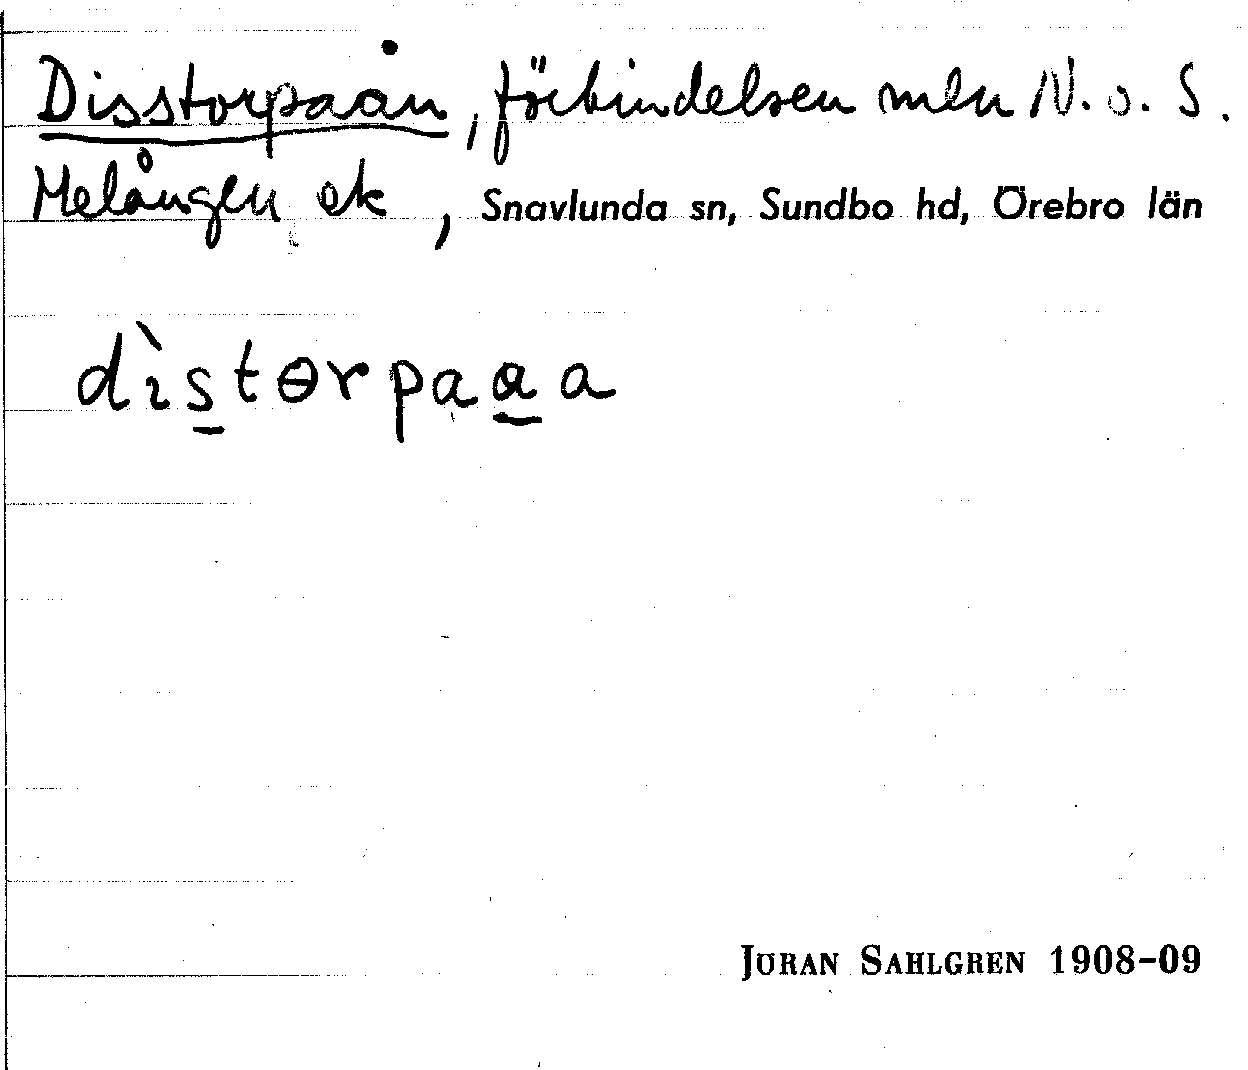 Disstorpaån, förbindelsen mln N. o. S.
Melången ek, Snavlunda sn, Sundbo hd, Örebro län
dìstɵrpaaa
JÖRAN SAHLGREN 1908-09